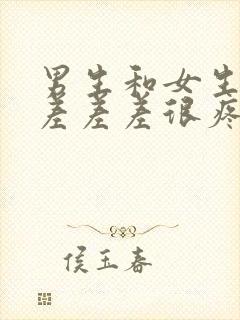 男生和女生
差差差很疼
侯玉春